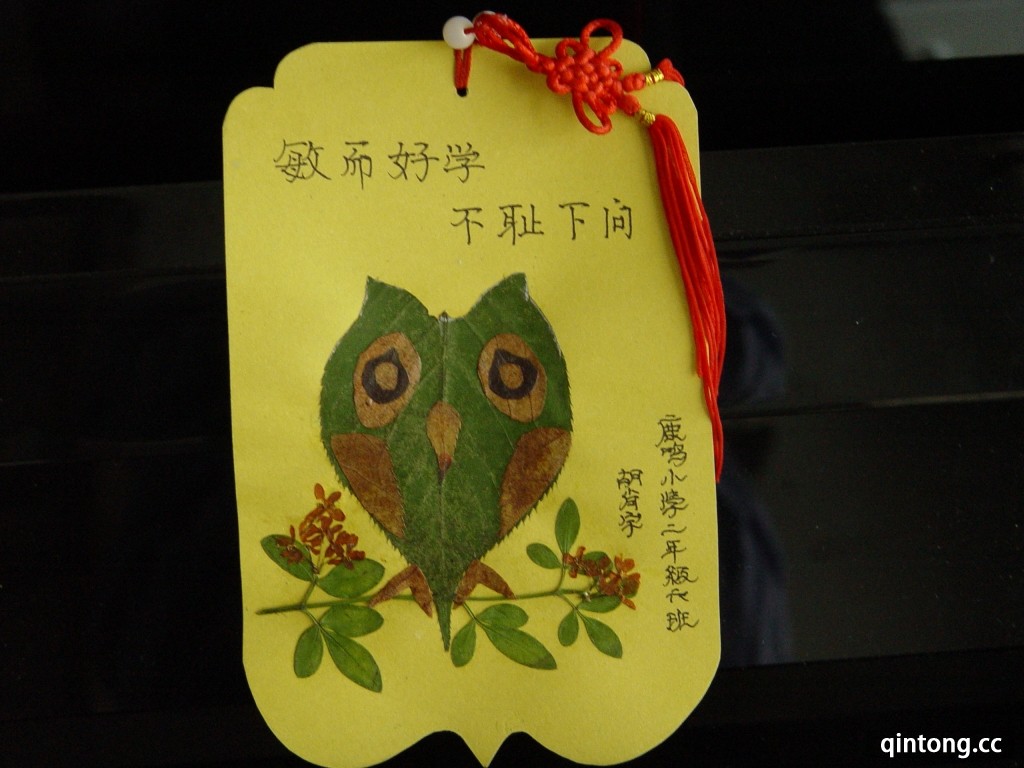 敏而好学
不耻下问
鹿鸣小学二年级七班
qintong.cc